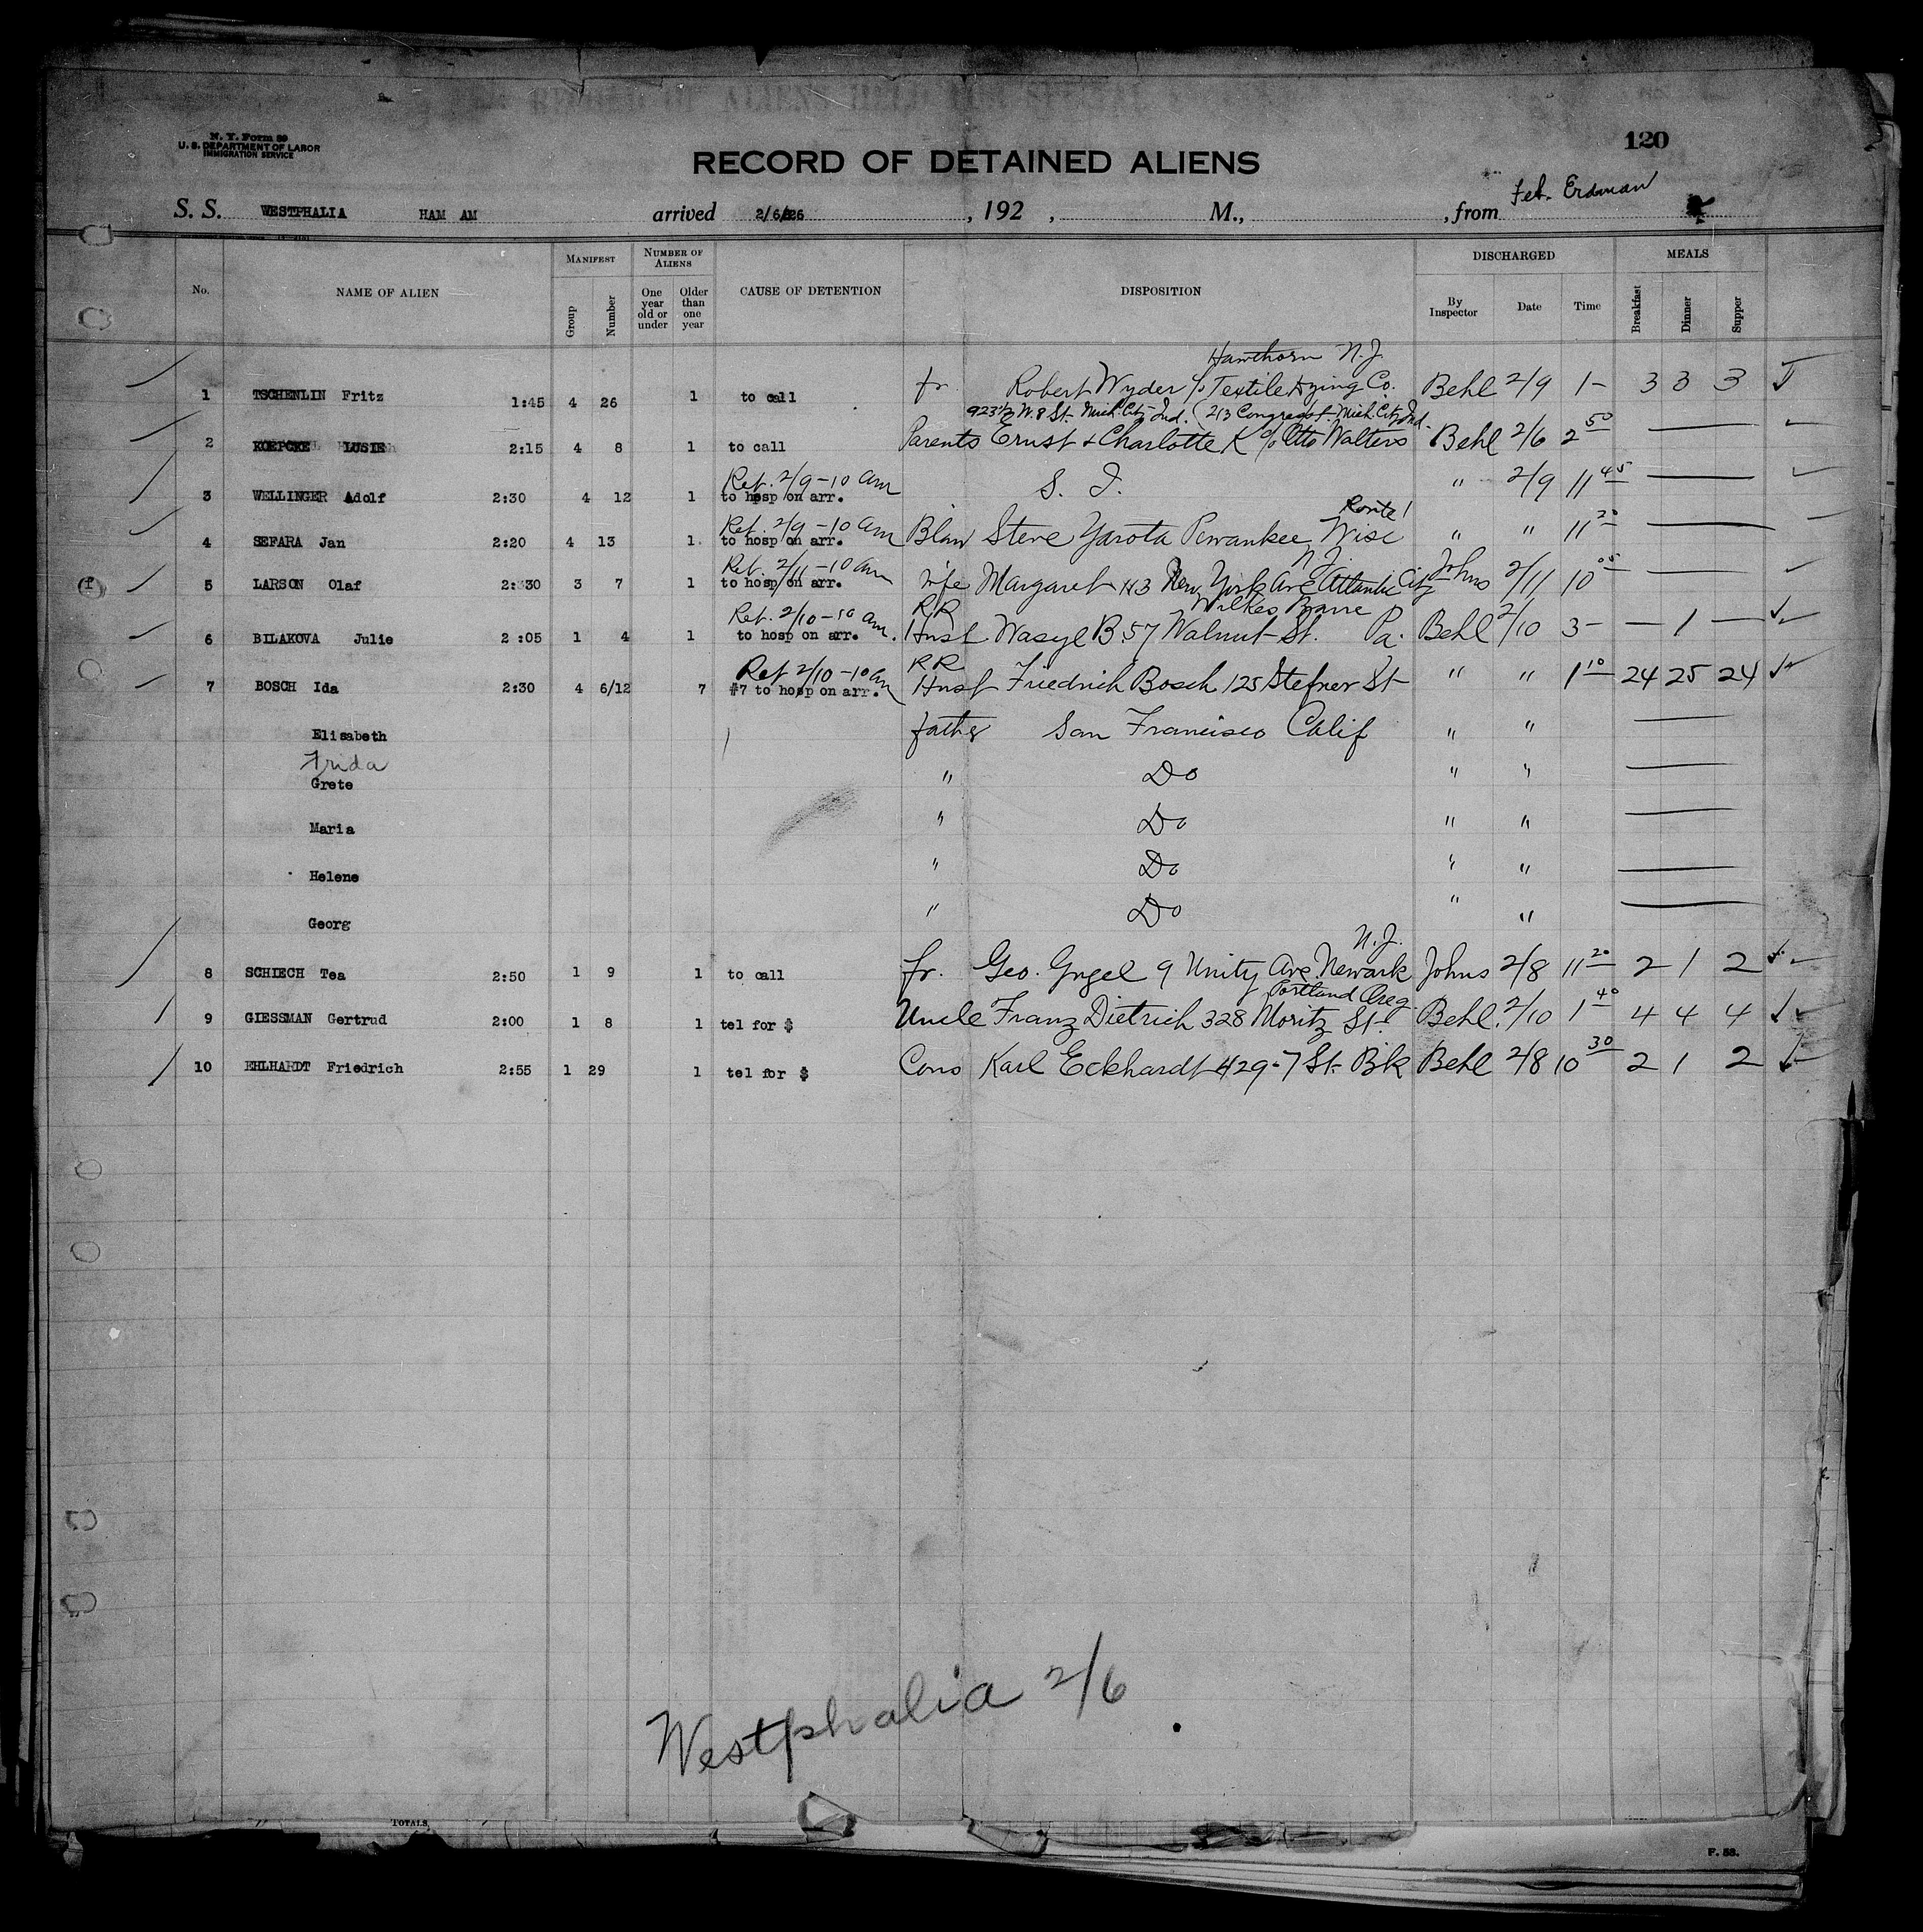 N. Y. Form 89
U. S. DEPARTMENT OF LABOR
IMMIGRATION SERVICE
120
RECORD OF DETAINED ALIENS
S. S. WESTPHALIA HAM AM arrived 2/6/26 , 192 , M., , from Erdman
No. NAME OF ALIEN MANIFEST Group Number NUMBER OF ALIENS One year old or under Older than one year CAUSE OF DETENTION DISPOSITION DISCHARGED By Inspector Date Time MEALS Breakfast Dinner Supper
Hawthorn N.J.
1 TSCHENLIN Fritz 1:45 4 26 1 to call fr Robert Wyder c/o Textile Dying Co. Behl 2/9 1- 3 3 3
923½ W. 8 St. Mich. City Ind. (213 Congress St. Mich. City Ind.
2 KOEPCKE LUSIE 2:15 4 8 1 to call Parents Ernst & Charlotte K c/o Otto Walters Behl 2/6 2 50
Ret. 2/9-10 am
3 WELLINGER Adolf 2:30 4 12 1 to hosp on arr. S. I. " 2/9 11 45
Ret. 2/9-10 am Route 1
4 SEFARA Jan 2:20 4 13 1 to hosp on arr. Blaw Steve Yarota Pewaukee, Wisc " " 11 20
Ret. 2/11-10 am N.J.
5 LARSON Olaf 2:30 3 7 1 to hosp on arr. wife Margaret 113 New York Ave Atlantic City Johns 2/11 10 05
Ret. 2/10-10 am. RR Wilkes Barre
6 BILAKOVA Julie 2:05 1 4 1 to hosp on arr. Husb Wasyl B. 57 Walnut St. Pa. Behl 2/10 3- — 1 —
Ret 2/10-10 am RR
7 BOSCH Ida 2:30 4 6/12 7 #7 to hosp on arr. Husb Friedrich Bosch 125 St " " 1 10 24 25 24
Elisabeth father San Francisco Calif " "
Frida
Grete " Do " "
Maria " Do " "
Helene " Do " "
Georg " Do " "
N.J.
8 SCHIECH Tea 2:50 1 9 1 to call fr. Geo. Gugel 9 Unity Ave. Newark Johns 2/8 11 20 2 1 2
Portland Oreg.
9 GIESSMAN Gertrud 2:00 1 8 1 tel for $ Uncle Franz Dietrich 328 Moritz St. Behl. 2/10 1 40 4 4 4
10 EHLHARDT Friedrich 2:55 1 29 1 tel for $ Cons Karl Eckhardt 429-7 St. Bik Behl 2/8 10 30 2 1 2
Westphalia 2/6
TOTALS
F. 53.